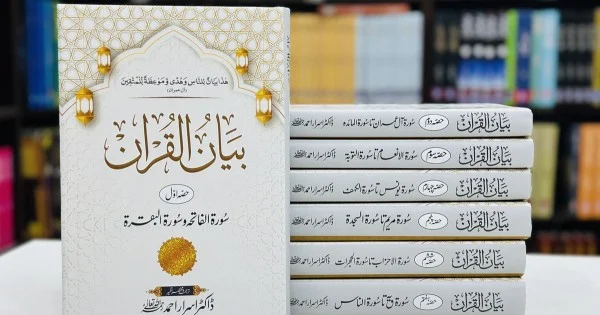 هٰذَا بَيَانٌ لِّلنَّاسِ وَهُدًى وَّمَوْعِظَةٌ لِّلْمُتَّقِيْنَ
(آل عمران)
بَیانُ القُرآن
حصّہ اوّل
سُورۃ الفاتحہ و سُورۃ البقرۃ
ڈاکٹر اسرار احمد
بیان القرآن حصّہ دوم سُورۃ آل عمران تا سُورۃ المائدہ ڈاکٹر اسرار احمد
بیان القرآن حصّہ سوم سُورۃ الانعام تا سُورۃ التوبۃ ڈاکٹر اسرار احمد
بیان القرآن حصّہ چہارم سُورۃ یونس تا سُورۃ الکھف ڈاکٹر اسرار احمد
بیان القرآن حصّہ پنجم سُورۃ مریم تا سُورۃ السجدۃ ڈاکٹر اسرار احمد
بیان القرآن حصّہ ششم سُورۃ الاحزاب تا سُورۃ الحجرات ڈاکٹر اسرار احمد
بیان القرآن حصّہ ہفتم سُورۃ قٓ تا سُورۃ الناس ڈاکٹر اسرار احمد